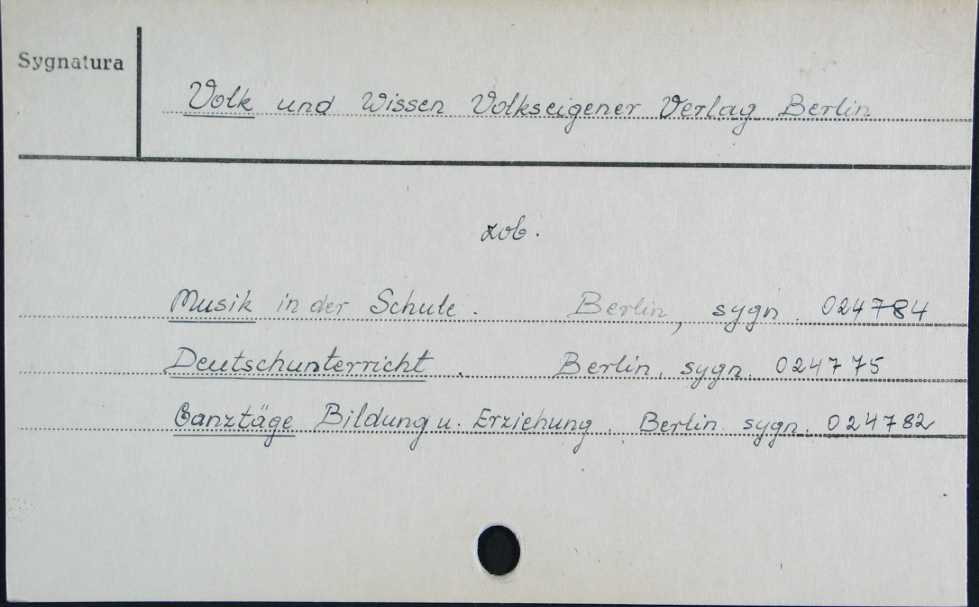 Sygnatura
Volk und Wissen Volkseigener Verlag Berlin
zob.
Musik in der Schule. Berlin, sygn. 024784
Deutschunterricht. Berlin, sygn. 024775
Ganztäge Bildung u. Erziehung. Berlin sygn. 024782